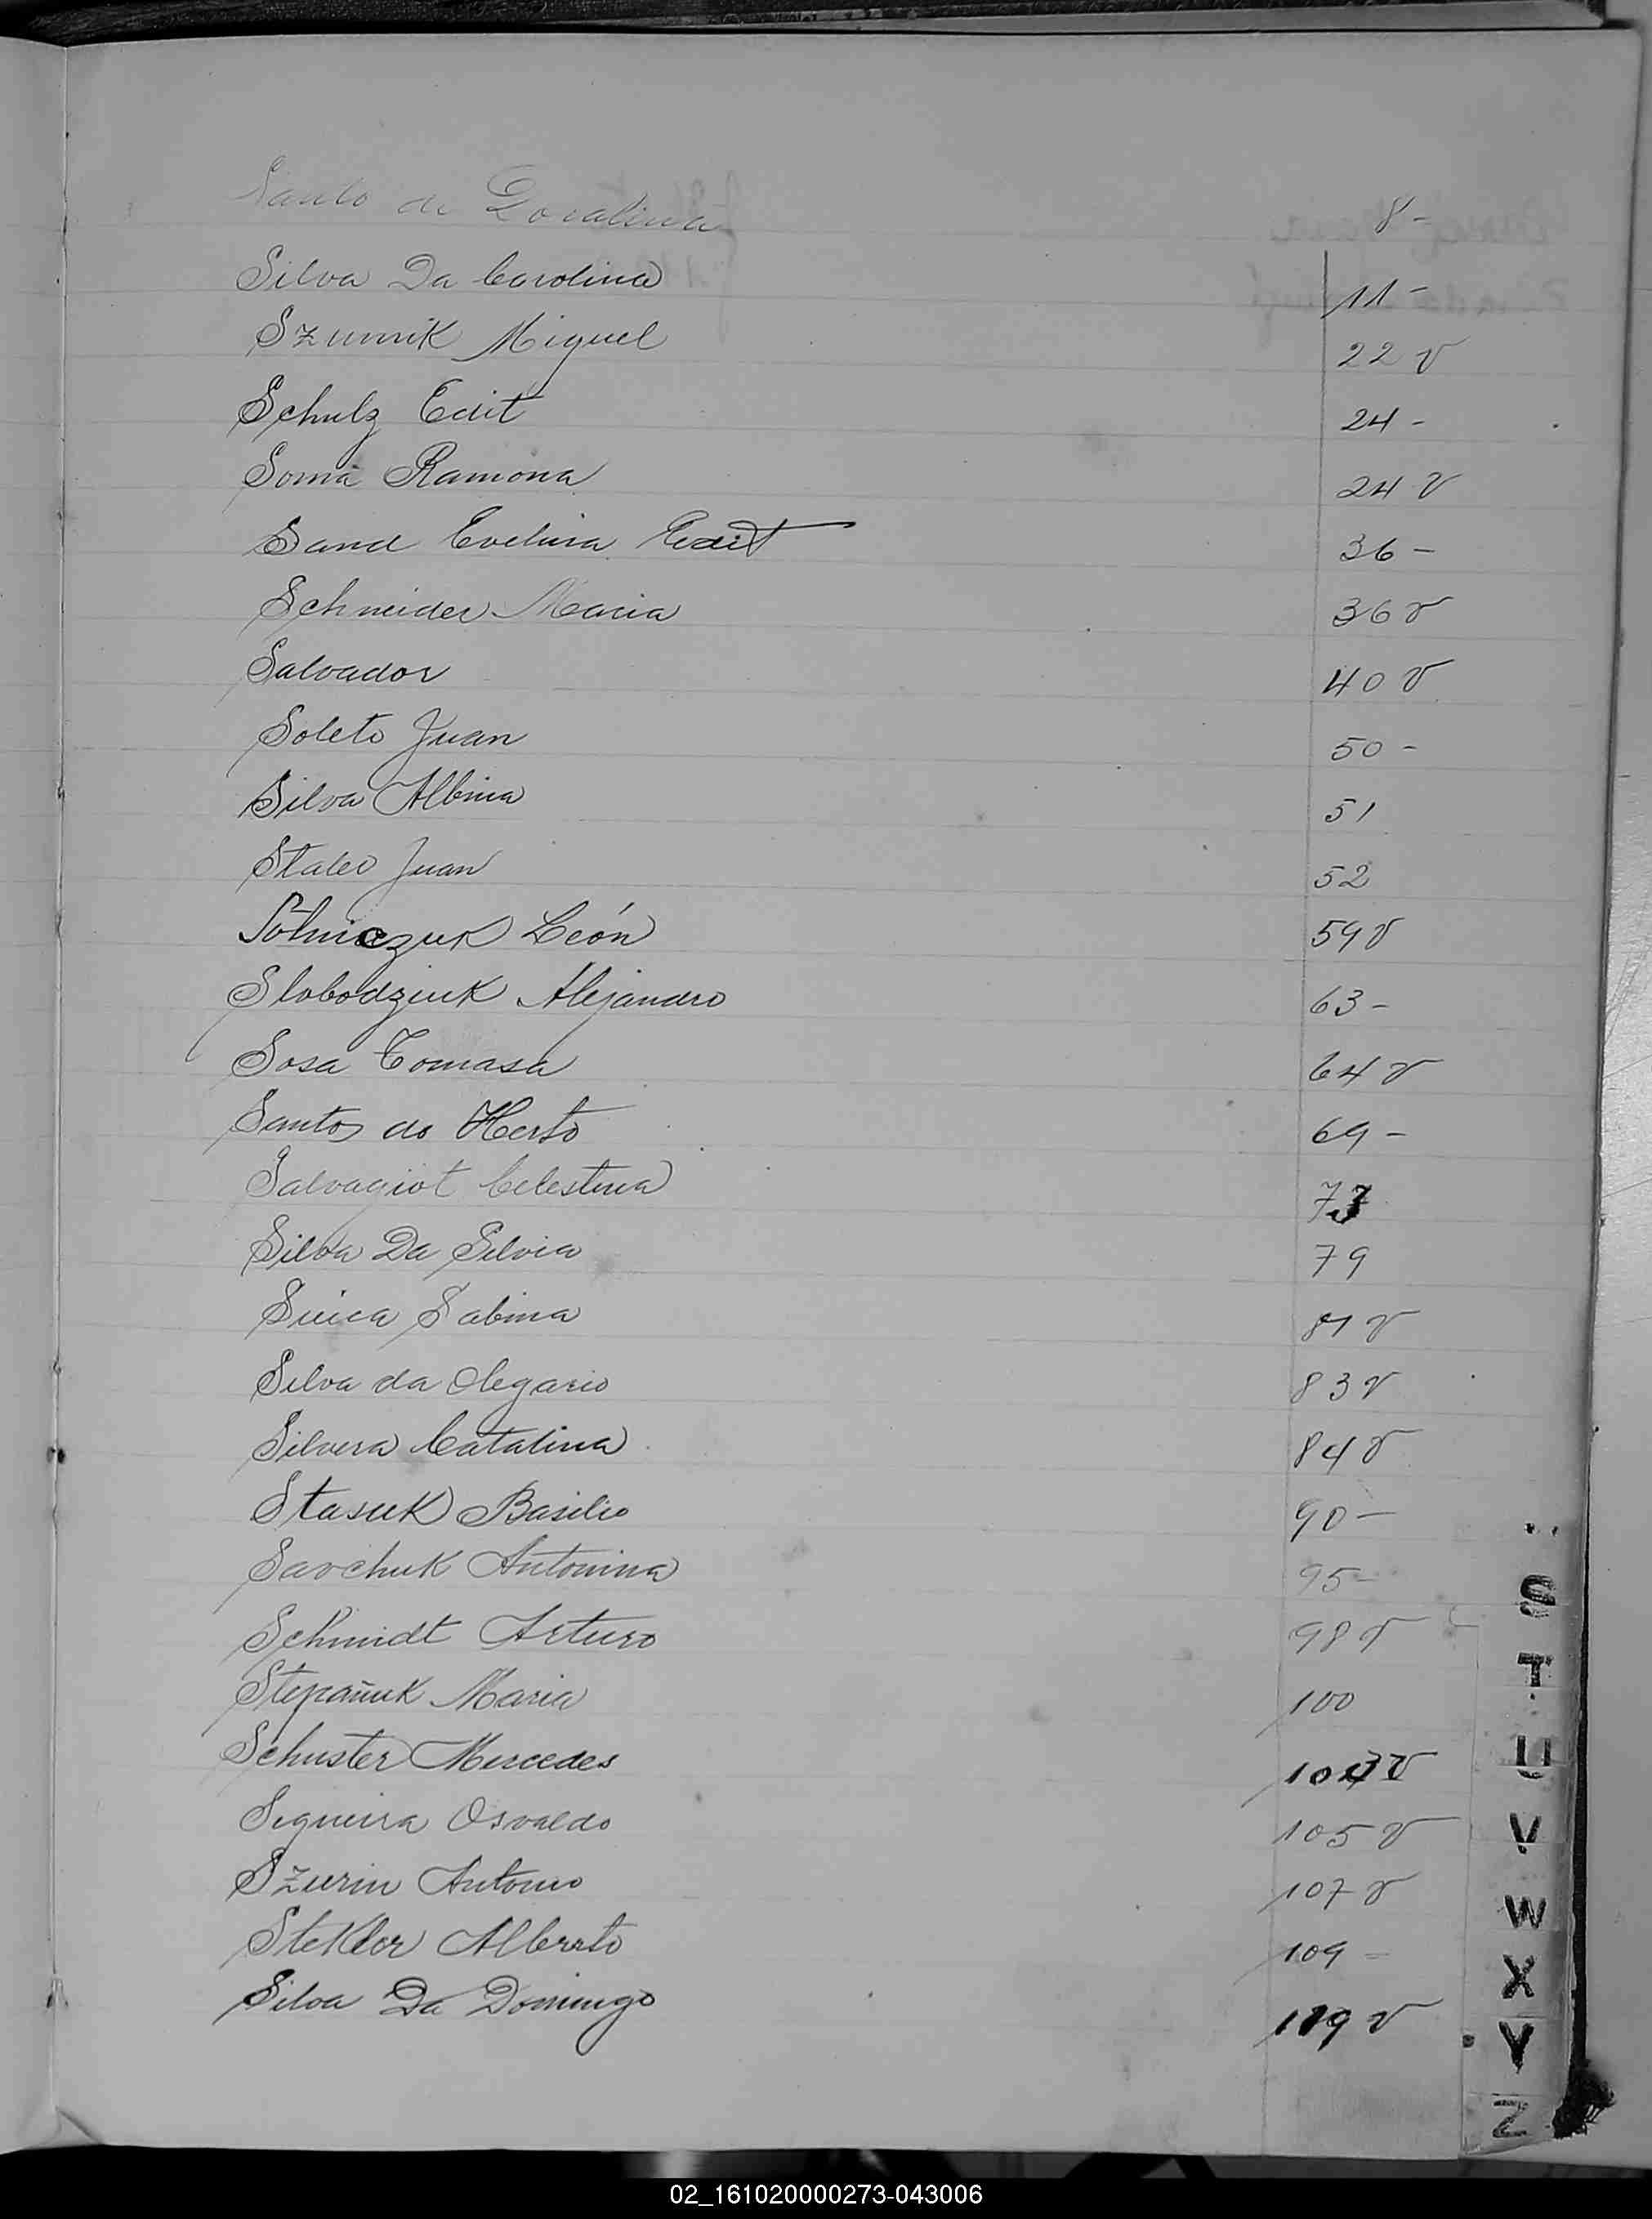 Santo de Doralina 8 -
Silva Da Carolina 11 -
Szumik Miguel 22 v
Schulz Edit 24 -
Soma Ramona 24 v
Sand Evelina Edit 36 -
Schneider Maria 36 v
Salvador 40 v
Soleto Juan 50 -
Silva Albina 51
Staler Juan 52
Sotniczuk León 59 v
Slobodziuk Alejandro 63 -
Sosa Tomasa 64 v
Santos do 69 -
Salvagiot Celestina 73
Silva Da Silvia 79
Sabina 81 v
Silva da Olegario 83 v
Silvera Catalina 84 v
Stasuk Basilio 90 -
Savchuk Antonina 95 -
Schmidt Arturo 98 v
Stepañuk Maria 100
Schuster Mercedes v
Segueira Osvaldo 105 v
Szurin Antonio 107 v
Stekler Alberto 109 -
Silva Da Domingo 119 v
S
T
U
V
W
X
Y
Z
02_161020000273-043006